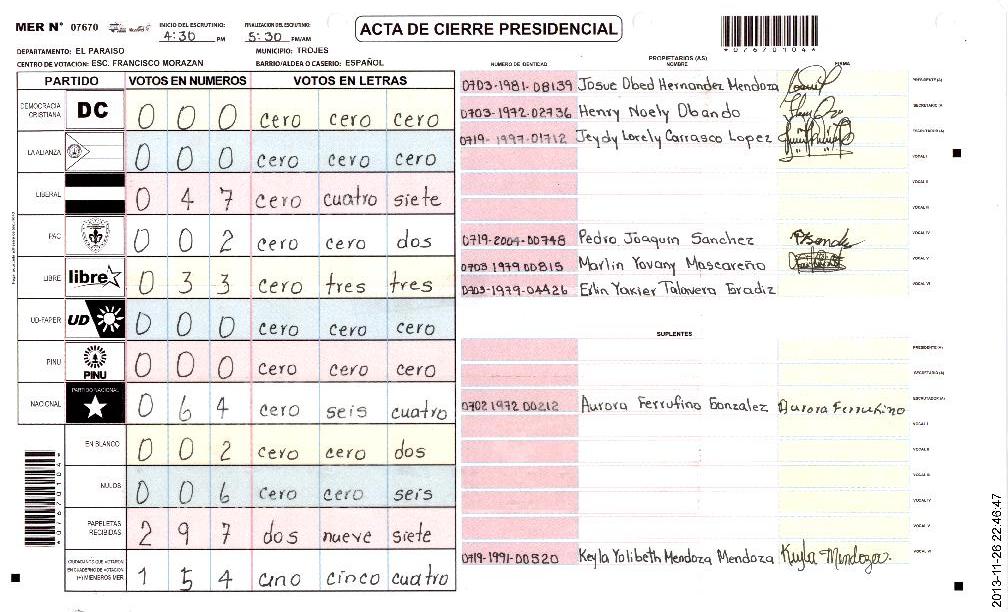 MER N° 07670
INICIO DEL ESCRUTINIO:
4:30 PM
FINALIZACION DEL ESCRUTINIO:
5:30 PM/AM
ACTA DE CIERRE PRESIDENCIAL
*07670104*
DEPARTAMENTO: EL PARAISO
MUNICIPIO: TROJES
CENTRO DE VOTACION: ESC. FRANCISCO MORAZAN
BARRIO/ALDEA O CASERIO: ESPAÑOL
PARTIDO VOTOS EN NUMEROS VOTOS EN LETRAS
DEMOCRACIA CRISTIANA DC 0 0 0 cero cero cero
LA ALIANZA 0 0 0 cero cero cero
LIBERAL 0 4 7 cero cuatro siete
PAC 0 0 2 cero cero dos
LIBRE libre 0 3 3 cero tres tres
UD-FAPER UD 0 0 0 cero cero cero
PINU PINU 0 0 0 cero cero cero
NACIONAL PARTIDO NACIONAL 0 6 4 cero seis cuatro
EN BLANCO 0 0 2 cero cero dos
NULOS 0 0 6 cero cero seis
PAPELETAS RECIBIDAS 2 9 7 dos nueve siete
CIUDADANOS QUE VOTARON EN CUADERNO DE VOTACION (+) MIEMBROS MER 1 5 4 uno cinco cuatro
*07670104*
PROPIETARIOS (AS)
NUMERO DE IDENTIDAD NOMBRE FIRMA
0703-1981-08139 Josue Obed Hernandez Mendoza PRESIDENTE (A)
0703-1972-02736 Henry Noely Obando SECRETARIO (A)
0719-1997-01712 Jeydy Lorely Carrasco Lopez ESCRUTADOR (A)
VOCAL I
VOCAL II
VOCAL III
0719-2004-00748 Pedro Joaquin Sanchez VOCAL IV
0703 1979 00815 Marlin Yovany Mascareño VOCAL V
0703-1979-04426 Erlin Yaxier Talavera Bradiz VOCAL VI
SUPLENTES
PRESIDENTE (A)
SECRETARIO (A)
0702 1972 00212 Aurora Ferrufino Gonzalez Aurora Ferrufino ESCRUTADOR (A)
VOCAL I
VOCAL II
VOCAL III
VOCAL IV
VOCAL V
0719-1991-00520 Keyla Yolibeth Mendoza Mendoza Keyla Mendoza VOCAL VI
2013-11-26 22:46:47